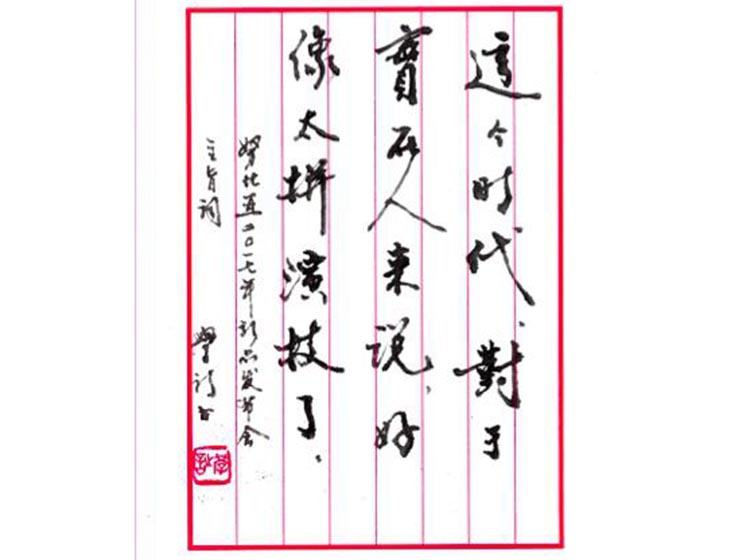 這个时代、對于
實在人来说，好
像太拼演技了。
努比亚二〇一七年新品发布会
主旨词
學诗书